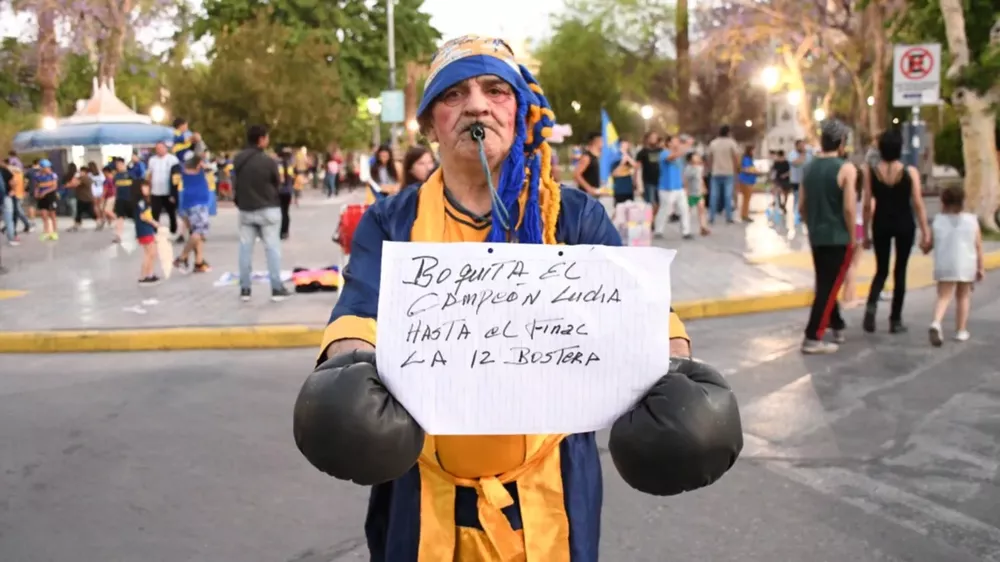 BOQUITA EL
CAMPEÓN LUCHA
HASTA el FINAL
LA 12 BOSTERA
E